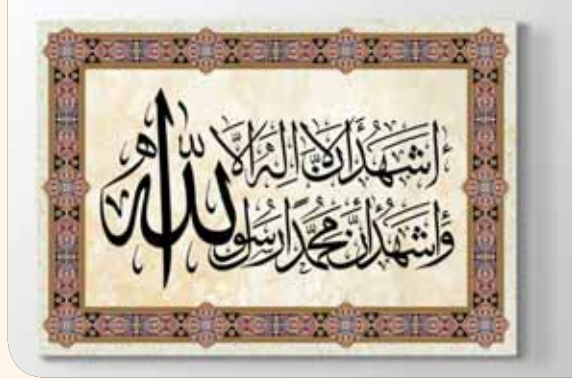 أَشْهَدُ أَنْ لَا إِلٰهَ إِلَّا
وَأَشْهَدُ أَنَّ مُحَمَّدًا رَسُولُ
الله